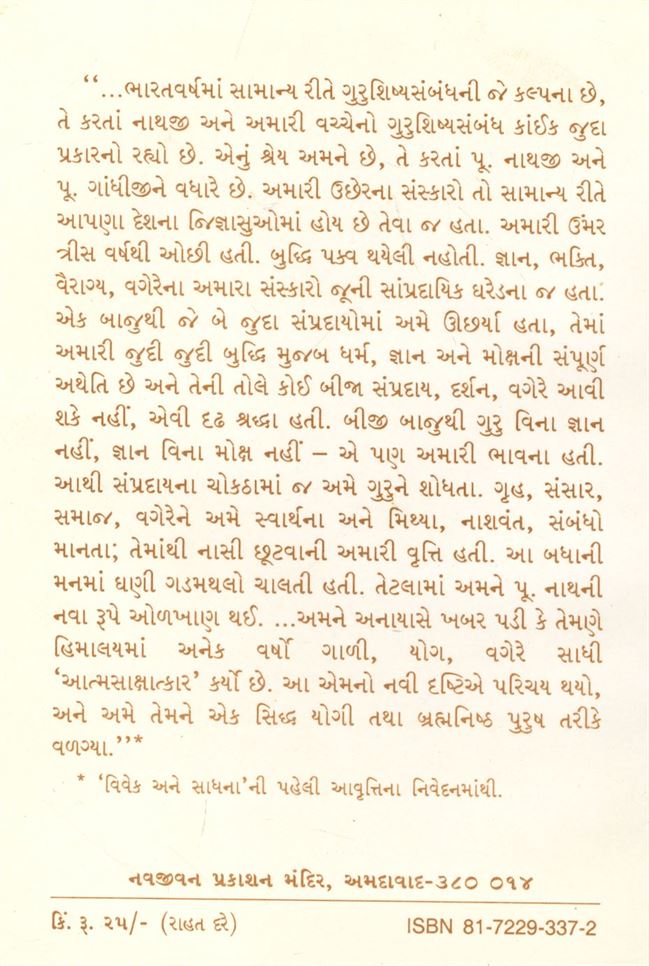 “...ભારતવર્ષમાં સામાન્ય રીતે ગુરુશિષ્યસંબંધની જે કલ્પના છે,
તે કરતાં નાથજી અને અમારી વચ્ચેનો ગુરુશિષ્યસંબંધ કાંઈક જુદા
પ્રકારનો રહ્યો છે. એનું શ્રેય અમને છે, તે કરતાં પૂ. નાથજી અને
પૂ. ગાંધીજીને વધારે છે. અમારી ઉછેરના સંસ્કારો તો સામાન્ય રીતે
આપણા દેશના જિજ્ઞાસુઓમાં હોય છે તેવા જ હતા. અમારી ઉંમર
ત્રીસ વર્ષથી ઓછી હતી. બુદ્ધિ પક્વ થયેલી નહોતી. જ્ઞાન, ભક્તિ,
વૈરાગ્ય, વગેરેના અમારા સંસ્કારો જૂની સાંપ્રદાયિક ઘરેડના જ હતા.
એક બાજુથી જે બે જુદા સંપ્રદાયોમાં અમે ઊછર્યા હતા, તેમાં
અમારી જુદી જુદી બુદ્ધિ મુજબ ધર્મ, જ્ઞાન અને મોક્ષની સંપૂર્ણ
અથેતિ છે અને તેની તોલે કોઈ બીજા સંપ્રદાય, દર્શન, વગેરે આવી
શકે નહીં, એવી દૃઢ શ્રદ્ધા હતી. બીજી બાજુથી ગુરુ વિના જ્ઞાન
નહીં, જ્ઞાન વિના મોક્ષ નહીં – એ પણ અમારી ભાવના હતી.
આથી સંપ્રદાયના ચોકઠામાં જ અમે ગુરુને શોધતા. ગૃહ, સંસાર,
સમાજ, વગેરેને અમે સ્વાર્થના અને મિથ્યા, નાશવંત, સંબંધો
માનતા; તેમાંથી નાસી છૂટવાની અમારી વૃત્તિ હતી. આ બધાની
મનમાં ઘણી ગડમથલો ચાલતી હતી. તેટલામાં અમને પૂ. નાથની
નવા રૂપે ઓળખાણ થઈ. ...અમને અનાયાસે ખબર પડી કે તેમણે
હિમાલયમાં અનેક વર્ષો ગાળી, યોગ, વગેરે સાધી
‘આત્મસાક્ષાત્કાર’ કર્યો છે. આ એમનો નવી દૃષ્ટિએ પરિચય થયો,
અને અમે તેમને એક સિદ્ધ યોગી તથા બ્રહ્મનિષ્ઠ પુરુષ તરીકે
વળગ્યા.”*
* ‘વિવેક અને સાધના’ની પહેલી આવૃત્તિના નિવેદનમાંથી.
નવજીવન પ્રકાશન મંદિર, અમદાવાદ-૩૮૦ ૦૧૪
કિં. રૂ. ૨૫/- (રાહત દરે)
ISBN 81-7229-337-2